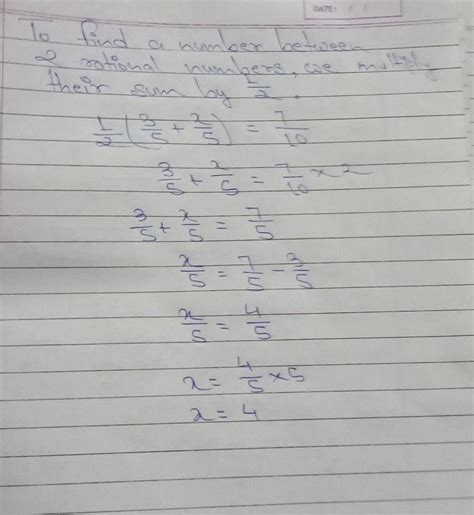 DATE: / /
To find a number between
2 rational numbers, we multiply
their sum by 1/2.
1/2 (3/5 + x/5) = 7/10
3/5 + x/5 = 7/10 × 2
3/5 + x/5 = 7/5
x/5 = 7/5 - 3/5
x/5 = 4/5
x = 4/5 × 5
x = 4